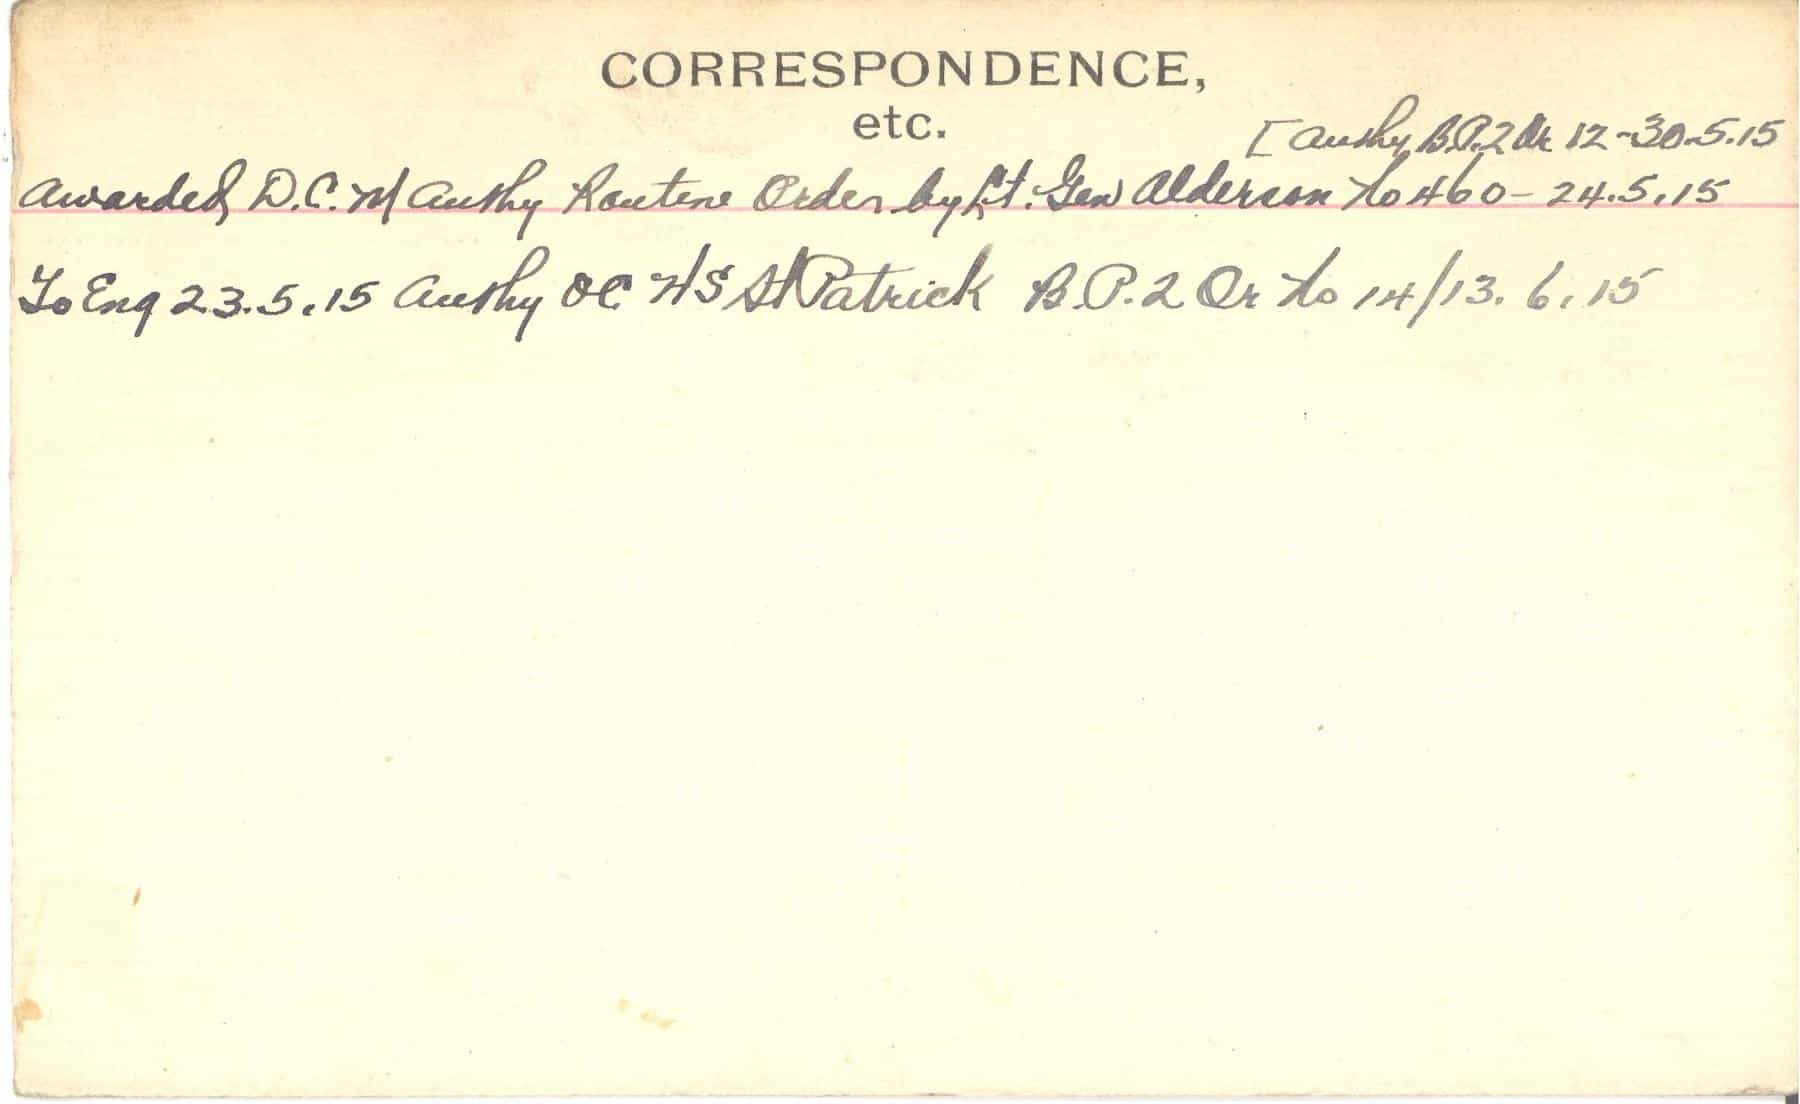 CORRESPONDENCE,
etc.
[ Authy B.P.2 Or 12-30.5.15
Awarded D.C.M Authy Routine Order by Lt. Gen Alderson No 460 - 24.5.15
To Eng 23.5.15 Authy OC H/S St Patrick B.P.2 Or No 14/13.6.15